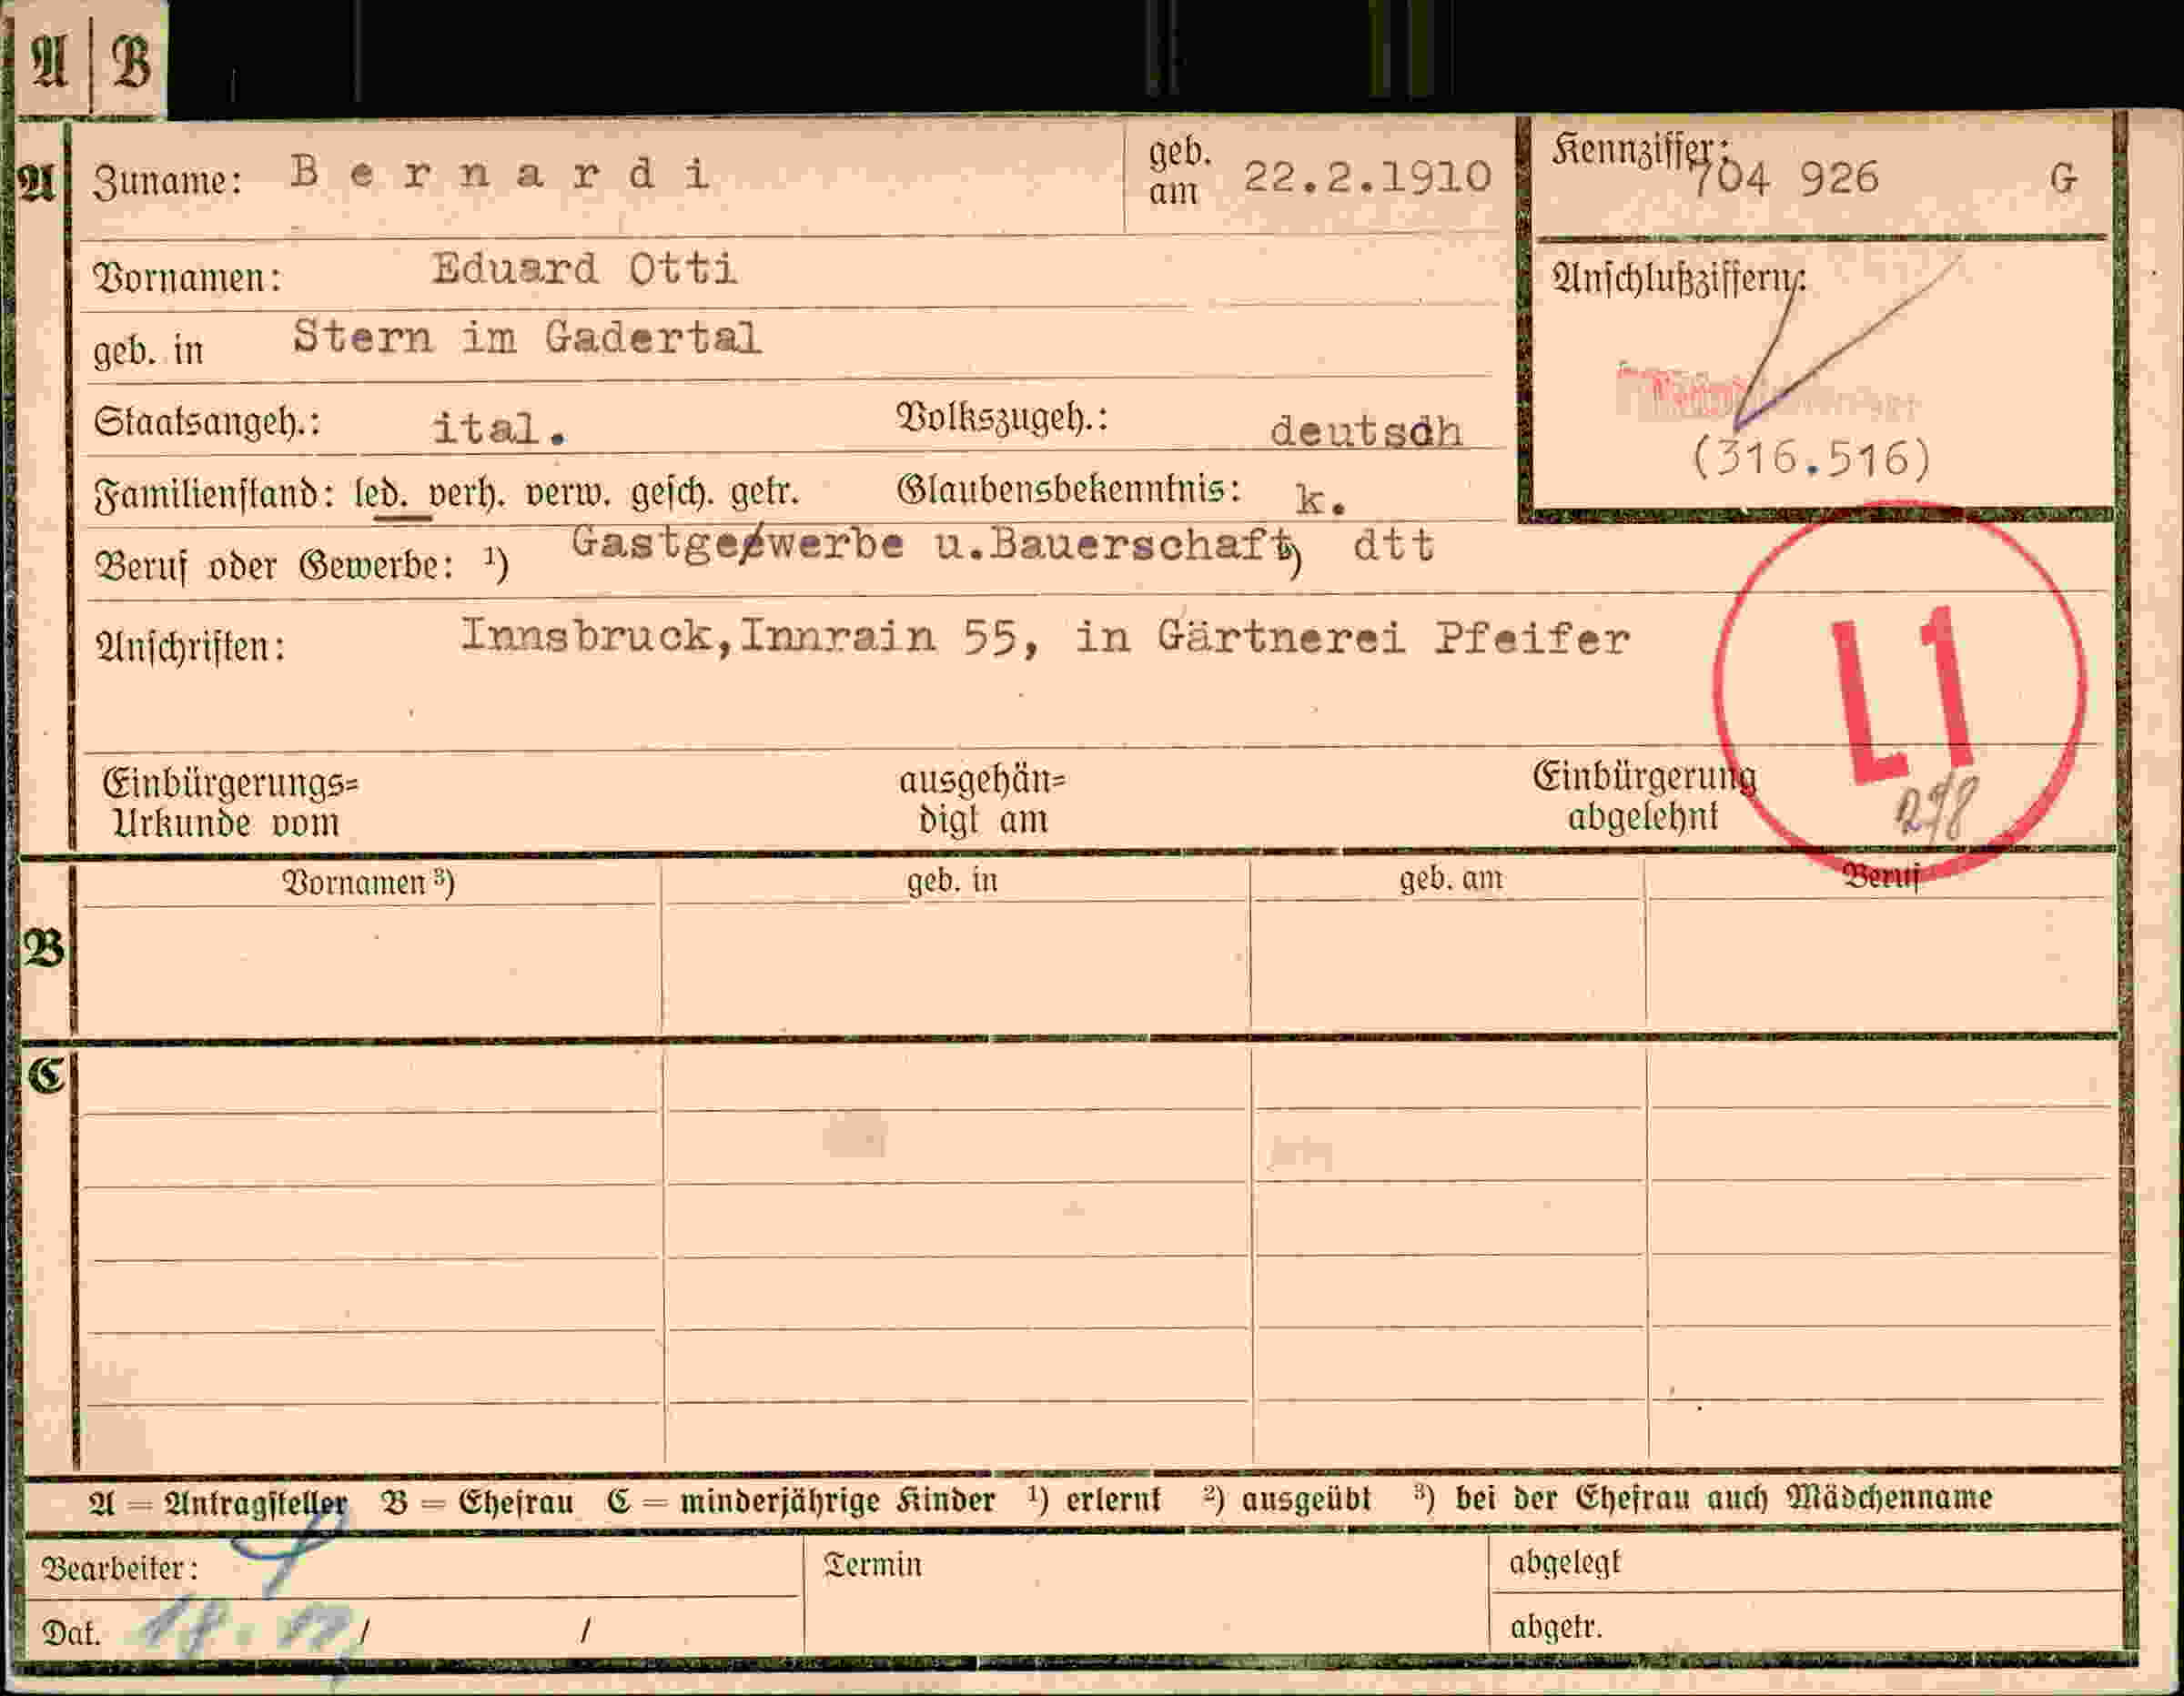 A | B
A Zuname: Bernardi geb. am 22.2.1910 Kennziffer: 704 926 G
Vornamen: Eduard Otti Anschlußziffern:
geb. in Stern im Gadertal
Staatsangeh.: ital. Volkszugeh.: deutsdh (316.516)
Familienstand: led. verh. verw. gesch. getr. Glaubensbekenntnis: k.
Beruf oder Gewerbe: ¹) Gastgewerbe u.Bauerschaft) dtt
Anschriften: Innsbruck,Innrain 55, in Gärtnerei Pfeifer
L1
Einbürgerungs= ausgehän= Einbürgerung
Urkunde vom digt am abgelehnt
Vornamen ³) geb. in geb. am Beruf
B
C
A = Antragsteller B = Ehefrau C = minderjährige Kinder ¹) erlernt ²) ausgeübt ³) bei der Ehefrau auch Mädchenname
Bearbeiter: Termin abgelegt
Dat. / / abgetr.